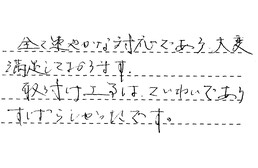 全て速やかな対応であり、大変
満足しております。
取り付け工事は、ていねいであり
すばらしかったです。